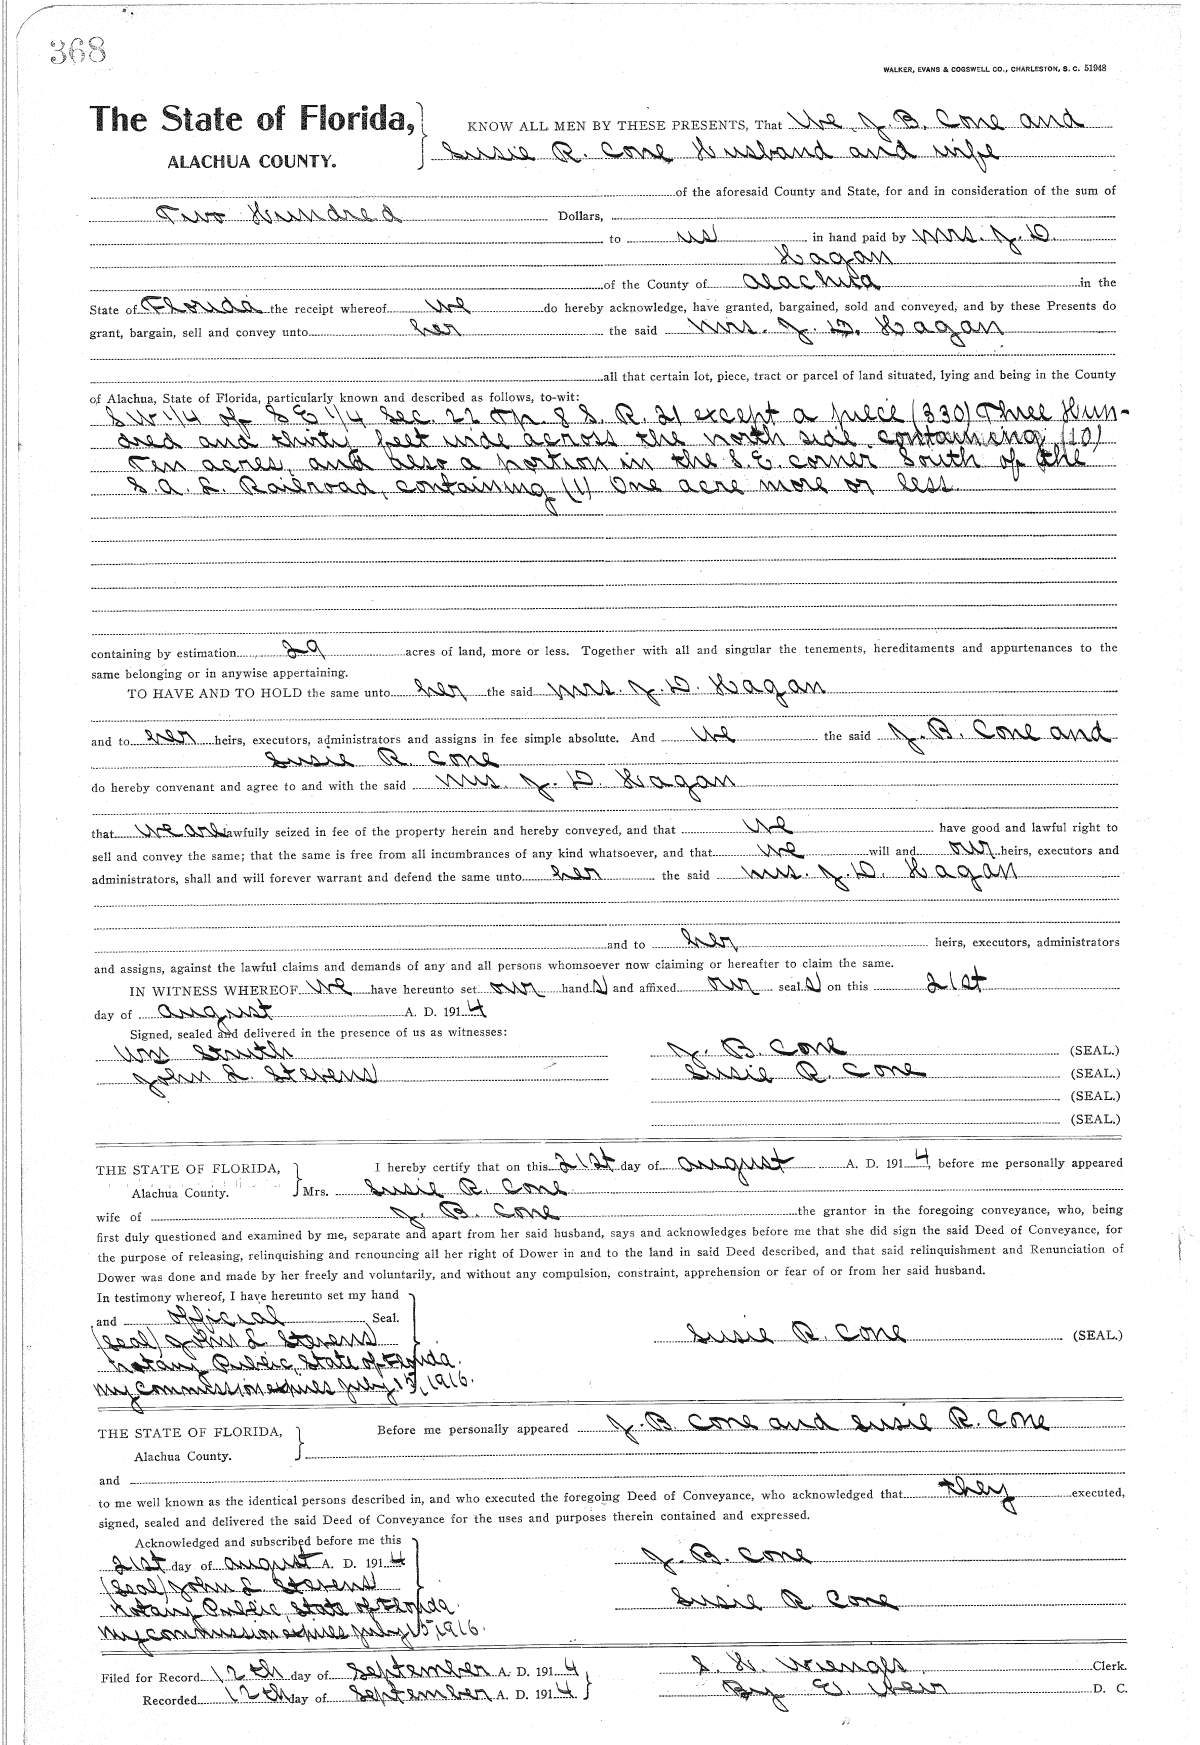 368
WALKER, EVANS & COGSWELL CO., CHARLESTON, S. C. 51948
The State of Florida, KNOW ALL MEN BY THESE PRESENTS, That We, J. B. Cone and
ALACHUA COUNTY. Susie R. Cone Husband and wife
of the aforesaid County and State, for and in consideration of the sum of
Two Hundred Dollars,
to us in hand paid by Mrs. J. D.
Hagan
of the County of Alachua in the
State of Florida the receipt whereof we do hereby acknowledge, have granted, bargained, sold and conveyed, and by these Presents do
grant, bargain, sell and convey unto her the said Mrs. J. D. Hagan
all that certain lot, piece, tract or parcel of land situated, lying and being in the County
of Alachua, State of Florida, particularly known and described as follows, to-wit:
S W 1/4 of S E 1/4 Sec. 22 Tp. 8 S. R. 21 except a piece (330) Three Hun-
dred and thirty feet wide across the north side containing (10)
Ten acres, and also a portion in the S. E. corner South of the
S. A. L. Railroad, containing (1) One acre more or less.
containing by estimation 29 acres of land, more or less. Together with all and singular the tenements, hereditaments and appurtenances to the
same belonging or in anywise appertaining.
TO HAVE AND TO HOLD the same unto her the said Mrs. J. D. Hagan
and to her heirs, executors, administrators and assigns in fee simple absolute. And we the said J. B. Cone and
Susie R. Cone
do hereby convenant and agree to and with the said Mrs. J. D. Hagan
that we are lawfully seized in fee of the property herein and hereby conveyed, and that we have good and lawful right to
sell and convey the same; that the same is free from all incumbrances of any kind whatsoever, and that we will and our heirs, executors and
administrators, shall and will forever warrant and defend the same unto her the said Mrs. J. D. Hagan
and to her heirs, executors, administrators
and assigns, against the lawful claims and demands of any and all persons whomsoever now claiming or hereafter to claim the same.
IN WITNESS WHEREOF We have hereunto set our hand s and affixed our seal s on this 21st
day of August A. D. 1914
Signed, sealed and delivered in the presence of us as witnesses:
Wm Struth J. B. Cone (SEAL.)
John L. Stevens Susie R. Cone (SEAL.)
(SEAL.)
(SEAL.)
THE STATE OF FLORIDA, I hereby certify that on this 21st day of August A. D. 1914, before me personally appeared
Alachua County. Mrs. Susie R. Cone
wife of J. B. Cone the grantor in the foregoing conveyance, who, being
first duly questioned and examined by me, separate and apart from her said husband, says and acknowledges before me that she did sign the said Deed of Conveyance, for
the purpose of releasing, relinquishing and renouncing all her right of Dower in and to the land in said Deed described, and that said relinquishment and Renunciation of
Dower was done and made by her freely and voluntarily, and without any compulsion, constraint, apprehension or fear of or from her said husband.
In testimony whereof, I have hereunto set my hand
and official Seal.
(Seal) John L Stevens Susie R. Cone (SEAL.)
Notary Public, State of Florida.
My commission expires July 15, 1916.
THE STATE OF FLORIDA, Before me personally appeared J. B. Cone and Susie R. Cone
Alachua County.
and
to me well known as the identical persons described in, and who executed the foregoing Deed of Conveyance, who acknowledged that they executed,
signed, sealed and delivered the said Deed of Conveyance for the uses and purposes therein contained and expressed.
Acknowledged and subscribed before me this
21st day of August A. D. 1914 J. B. Cone
(Seal) John L Stevens
Notary Public, State of Florida. Susie R Cone
My commission expires July 15, 1916.
Filed for Record 12th day of September A. D. 1914 S. H. Wienges Clerk.
Recorded 12th day of September A. D. 1914 By E. Weir D. C.